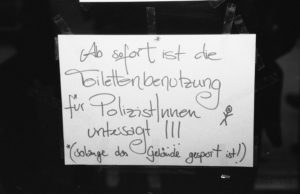 Ab sofort* ist die
Toilettenbenutzung
für PolizistInnen
untersagt !!!
*(solange das Gelände gesperrt ist!)